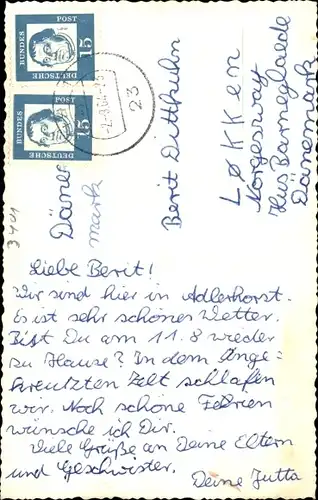 BUNDES POST
15
DEUTSCHE
BUNDES POST
15
DEUTSCHE
23
Däne
mark
3421
Berit Ditthuhn
LØKKEN
Norgesvay
Hus Barneglaede
Dänemark
Liebe Berit!
Wir sind hier in Adlerhorst.
Es ist sehr schönes Wetter.
Bist Du am 11.8 wieder
zu Hause? In dem ange=
kreutzten Zelt schlafen
wir. Noch schöne Ferien
wünsche ich Dir.
Viele Grüße an Deine Eltern
und Geschwister.
Deine Jutta